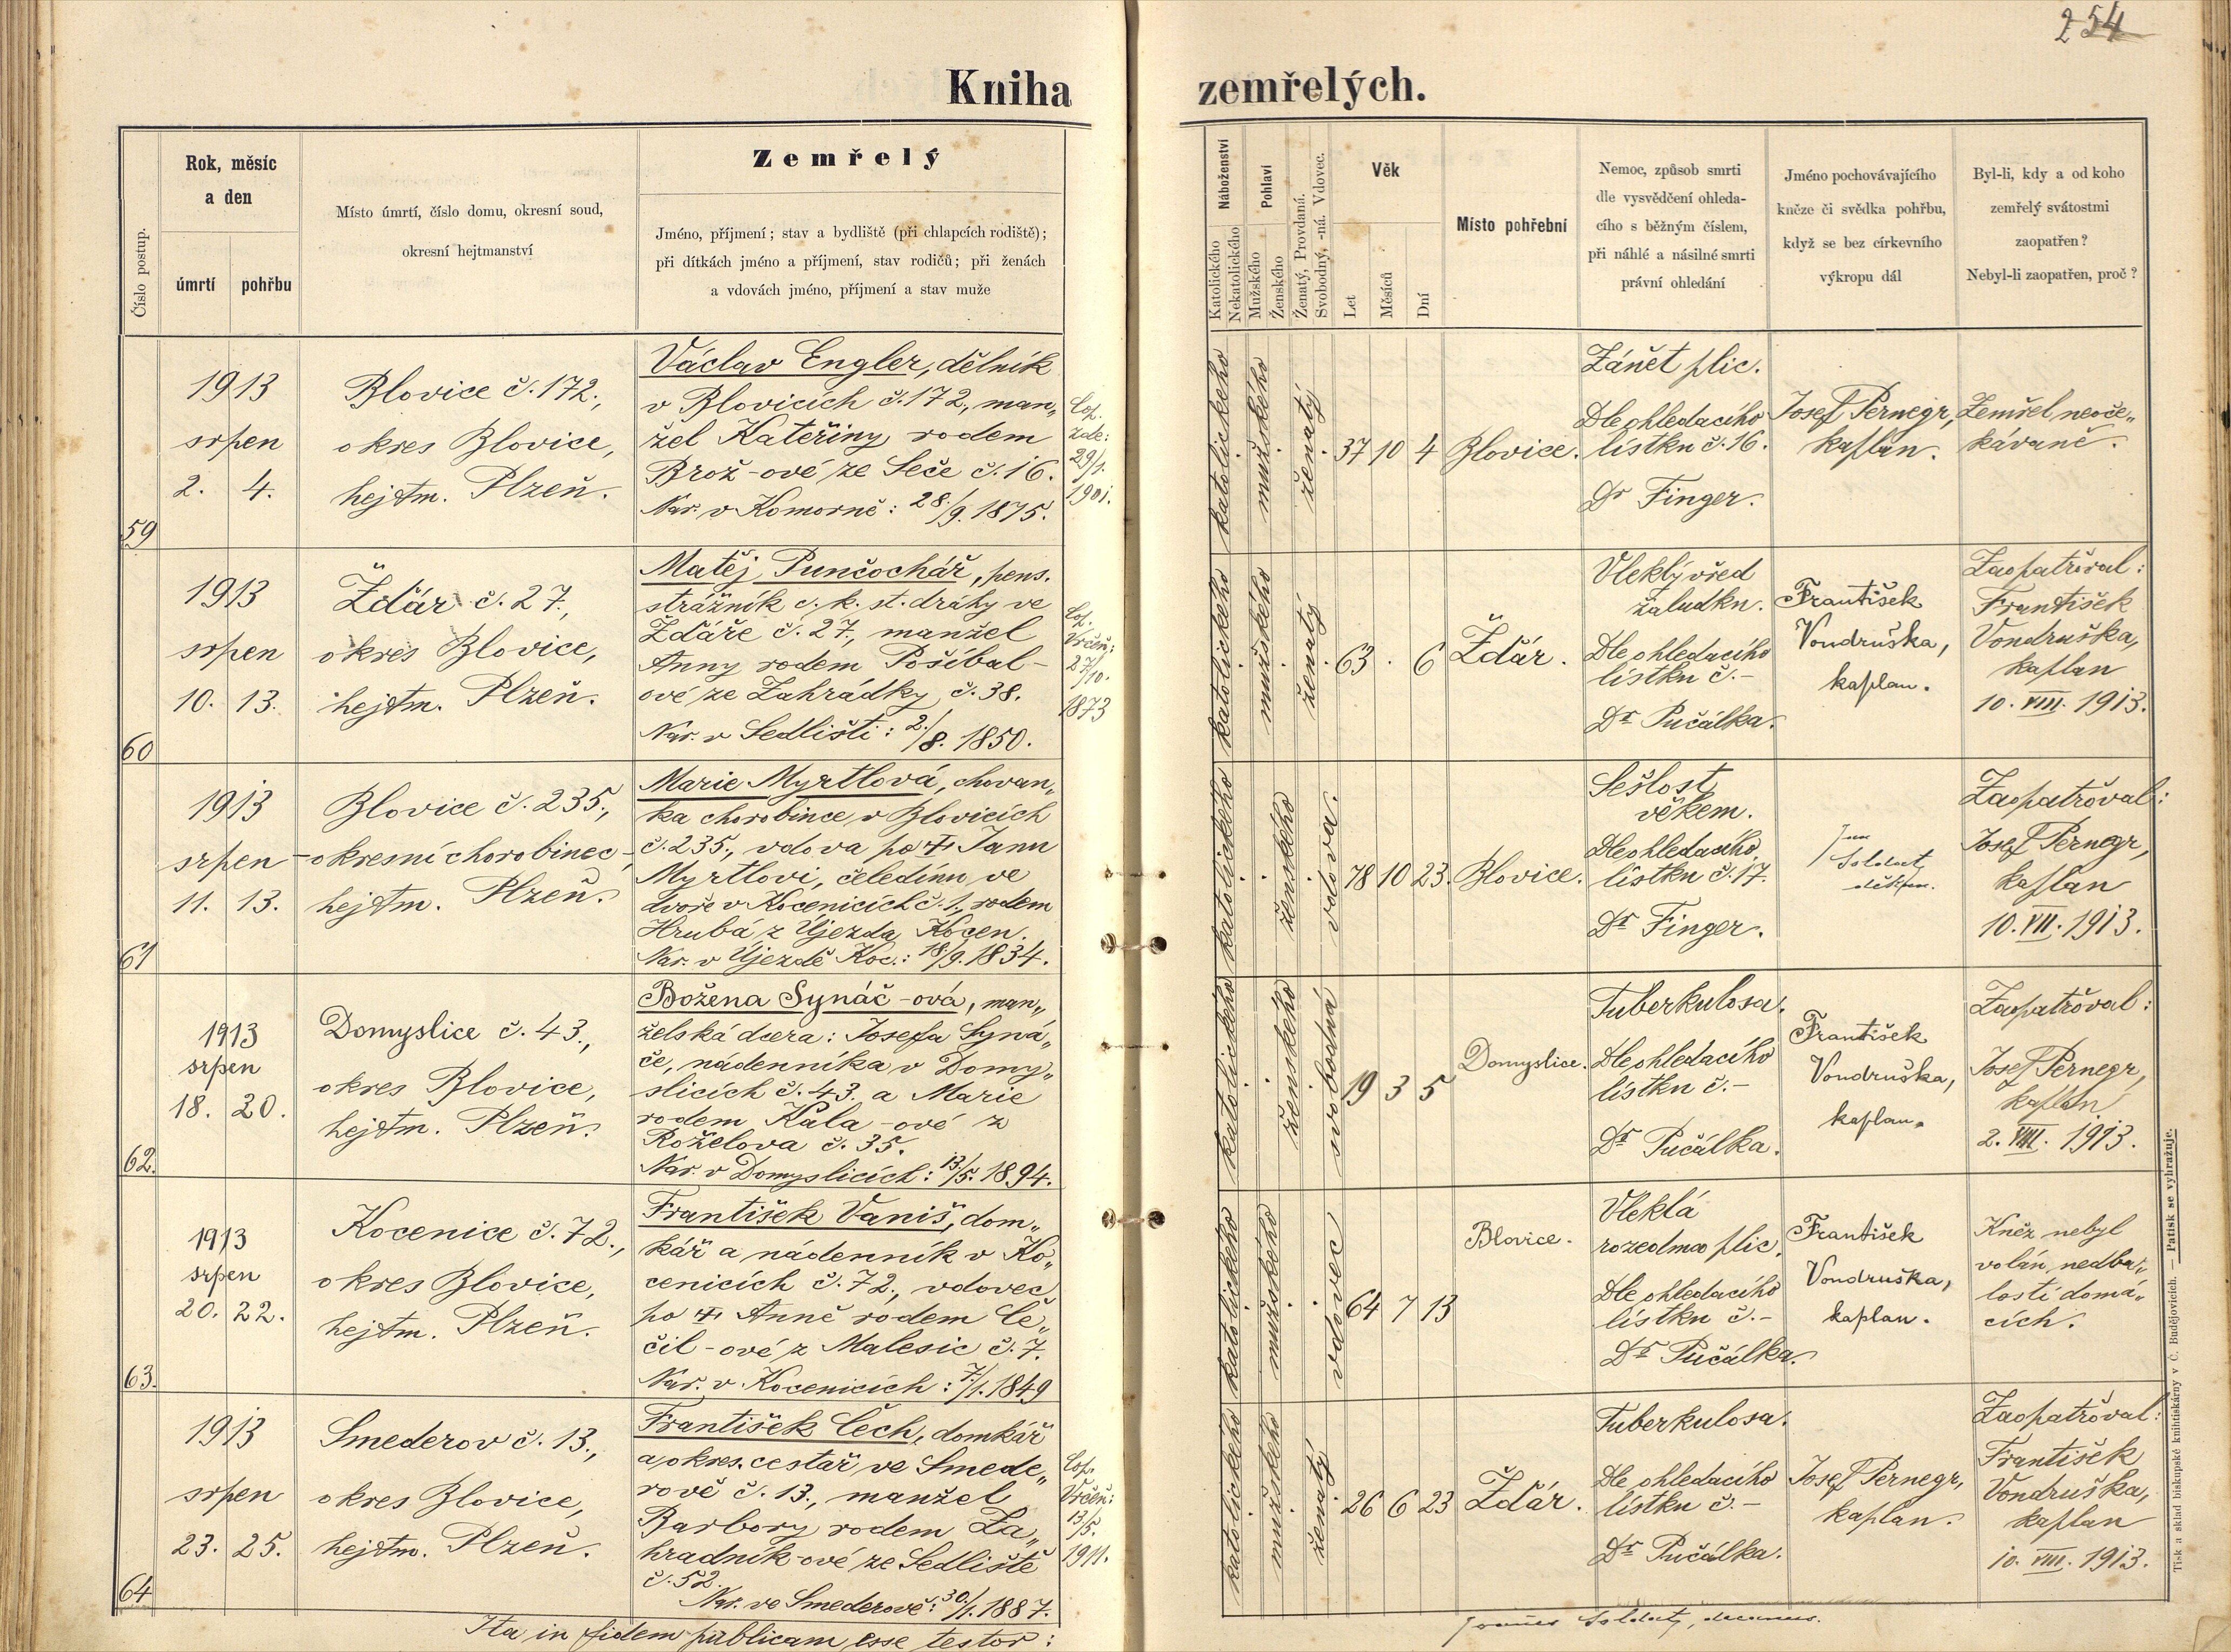 254
Kniha zemřelých.
Číslo postup.
Rok, měsíc
a den
úmrtí
pohřbu
Místo úmrtí, číslo domu, okresní soud,
okresní hejtmanství
Zemřelý
Jméno, příjmení; stav a bydliště (při chlapcích rodiště);
při dítkách jméno a příjmení, stav rodičů; při ženách
a vdovách jméno, příjmení a stav muže
Náboženství
Katolického
Nekatolického
Pohlaví
Mužského
Ženského
Ženatý, Provdaná.
Svobodný, -ná. Vdovec.
Věk
Let
Měsíců
Dní
Místo pohřební
Nemoc, způsob smrti
dle vysvědčení ohleda-
cího s běžným číslem,
při náhlé a násilné smrti
právní ohledání
Jméno pochovávajícího
kněze či svědka pohřbu,
když se bez církevního
výkropu dál
Byl-li, kdy a od koho
zemřelý svátostmi
zaopatřen?
Nebyl-li zaopatřen, proč?
59
1913
srpen
2. 4.
Blovice č. 172.,
okres Blovice,
hejtm. Plzeň.
Václav Engler, dělník
v Blovicích č. 172., man„
žel Kateřiny rodem
Brož-ové ze Seče č. 16.
Nar. v Komorně: 28./9. 1875.
Cop.
zde:
29/1.
1901.
katolického
mužského
ženatý
37 10 4
Blovice.
Zánět plic.
Dle ohledacího
lístku č. 16.
Dr Finger.
Josef Pernegr,
kaplan.
Zemřel neoče„
kávaně.
60
1913
srpen
10. 13.
Žďár č. 27.,
okres Blovice,
hejtm. Plzeň.
Matěj Punčochář, pens.
strážník c. k. st. dráhy ve
Žďáře č. 27., manžel
Anny rodem Pošíbal-
ové ze Zahrádky č. 38.
Nar. v Sedlišti: 2./8. 1850.
Cop.
Vrčeň:
27/10.
1873
katolického
mužského
ženatý
63 . 6
Žďár.
Vleklý vřed
žaludku.
Dle ohledacího
lístku č. -
Dr Pučálka.
František
Vondruška,
kaplan.
Zaopatřoval:
František
Vondruška,
kaplan
10. VIII. 1913.
61
1913
srpen
11. 13.
Blovice č. 235.,
-okresní chorobinec,-
hejtm. Plzeň.
Marie Myrtlová, chovan„
ka chorobince v Blovicích
č. 235., vdova po † Janu
Myrtlovi, čeledínu ve
dvoře v Kocenicích č. 1., rodem
Hrubá z Újezda Kocen.
Nar. v Újezdě Koc.: 18/9. 1834.
katolického
ženského
vdova.
78 10 23.
Blovice.
Sešlost
věkem.
Dle ohledacího
lístku č. 17.
Dr Finger.
Jan
Soldát,
děkan.
Zaopatřoval:
Josef Pernegr,
kaplan
10. VII. 1913.
62.
1913
srpen
18. 20.
Domyslice č. 43.,
okres Blovice,
hejtm. Plzeň.
Božena Synáč-ová, man„
želská dcera: Josefa Syná„
če, nádenníka v Domy„
slicích č. 43. a Marie
rodem Kala-ové z
Roželova č. 35.
Nar. v Domyslicích: 13./5. 1894.
katolického
ženského
svobodná
19 3 5
Domyslice.
Tuberkulosa.
Dle ohledacího
lístku č. -
Dr Pučálka.
František
Vondruška,
kaplan.
Zaopatřoval:
Josef Pernegr,
kaplan
2. VIII. 1913.
63.
1913
srpen
20. 22.
Kocenice č. 72.,
okres Blovice,
hejtm. Plzeň.
František Vaniš, dom„
kář a nádenník v Ko„
cenicích č. 72., vdovec
po † Anně rodem Če„
čil-ové z Malesic č. 7.
Nar. v Kocenicích: 7./1. 1849
katolického
mužského
vdovec
64 7 13
Blovice.
Vleklá
rozedma plic.
Dle ohledacího
lístku č. -
Dr Pučálka.
František
Vondruška,
kaplan.
Kněz nebyl
volán, nedba„
lostí domá„
cích.
64
1913
srpen
23. 25.
Smederov č. 13.,
okres Blovice,
hejtm. Plzeň.
František Čech, domkář
a okres. cestář ve Smede„
rově č. 13., manžel
Barbory rodem Za„
hradník-ové ze Sedliště
č. 52.
Nar. ve Smederově: 30./1. 1887.
Cop.
Vrčeň:
13/5.
1911.
katolického
mužského
ženatý
26 6 23
Žďár.
Tuberkulosa.
Dle ohledacího
lístku č. -
Dr Pučálka.
Josef Pernegr,
kaplan.
Zaopatřoval:
František
Vondruška,
kaplan
10. VIII. 1913.
Ita in fidem publicam esse testor:
Joannes Soldát, decanus.
Tisk a sklad biskupské knihtiskárny v Č. Budějovicích. — Patisk se vyhražuje.